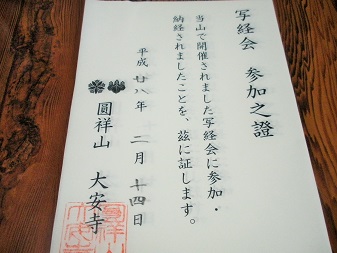 写経会　参加之證
当山で開催されました写経会に参加・
納経されましたことを、茲に証します。
平成廿八年　二月　十四日
圓祥山　大安寺
圓祥山
大安寺